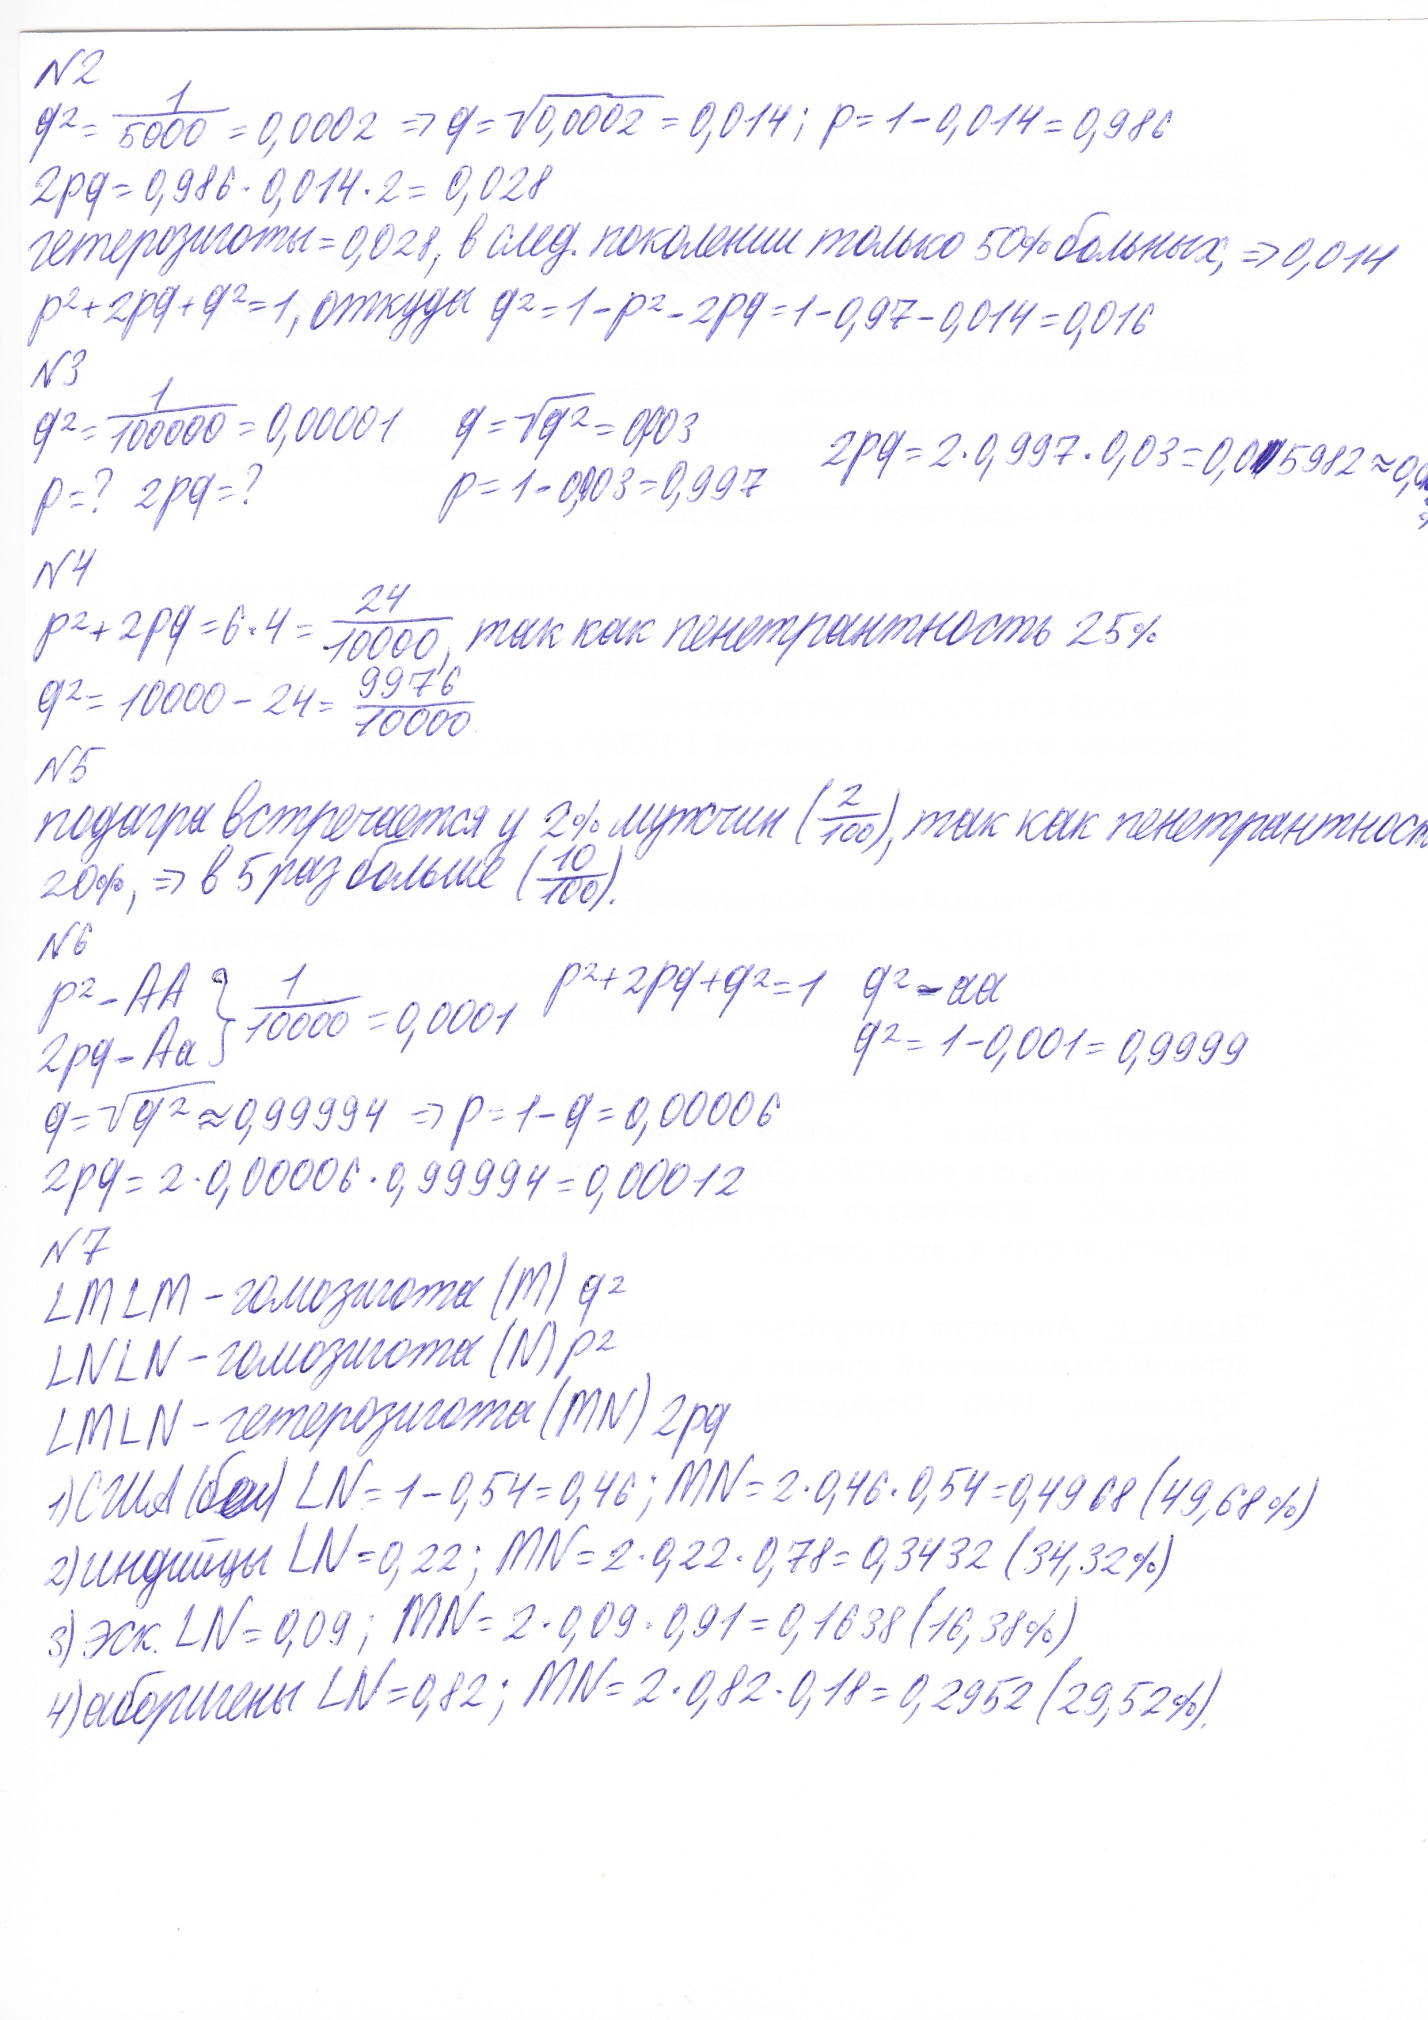 №2
q² = 1/5000 = 0,0002 => q = √0,0002 = 0,014; p = 1 - 0,014 = 0,986
2pq = 0,986 · 0,014 · 2 = 0,028
гетерозиготы = 0,028, в след. поколении только 50% больных, => 0,014
p² + 2pq + q² = 1, откуда q² = 1 - p² - 2pq = 1 - 0,97 - 0,014 = 0,016
№3
q² = 1/100000 = 0,00001 q = √q² = 0,003
p = ? 2pq = ? p = 1 - 0,003 = 0,997 2pq = 2 · 0,997 · 0,03 = 0,005982 ≈
№4
p² + 2pq = 6 · 4 = 24/10000, так как пенетрантность 25%
q² = 10000 - 24 = 9976/10000
№5
подагра встречается у 2% мужчин (2/100), так как пенетрантност
20%, => в 5 раз больше (10/100).
№6
p² - AA } 1/10000 = 0,0001 p² + 2pq + q² = 1 q² - aa
2pq - Aa q² = 1 - 0,001 = 0,9999
q = √q² ≈ 0,99994 => p = 1 - q = 0,00006
2pq = 2 · 0,00006 · 0,99994 = 0,00012
№7
LMLM - гомозигота (M) q²
LNLN - гомозигота (N) p²
LMLN - гетерозигота (MN) 2pq
1) США (бел) LN = 1 - 0,54 = 0,46; MN = 2 · 0,46 · 0,54 = 0,4968 (49,68%)
2) индийцы LN = 0,22; MN = 2 · 0,22 · 0,78 = 0,3432 (34,32%)
3) эск. LN = 0,09; MN = 2 · 0,09 · 0,91 = 0,1638 (16,38%)
4) аборигены LN = 0,82; MN = 2 · 0,82 · 0,18 = 0,2952 (29,52%).